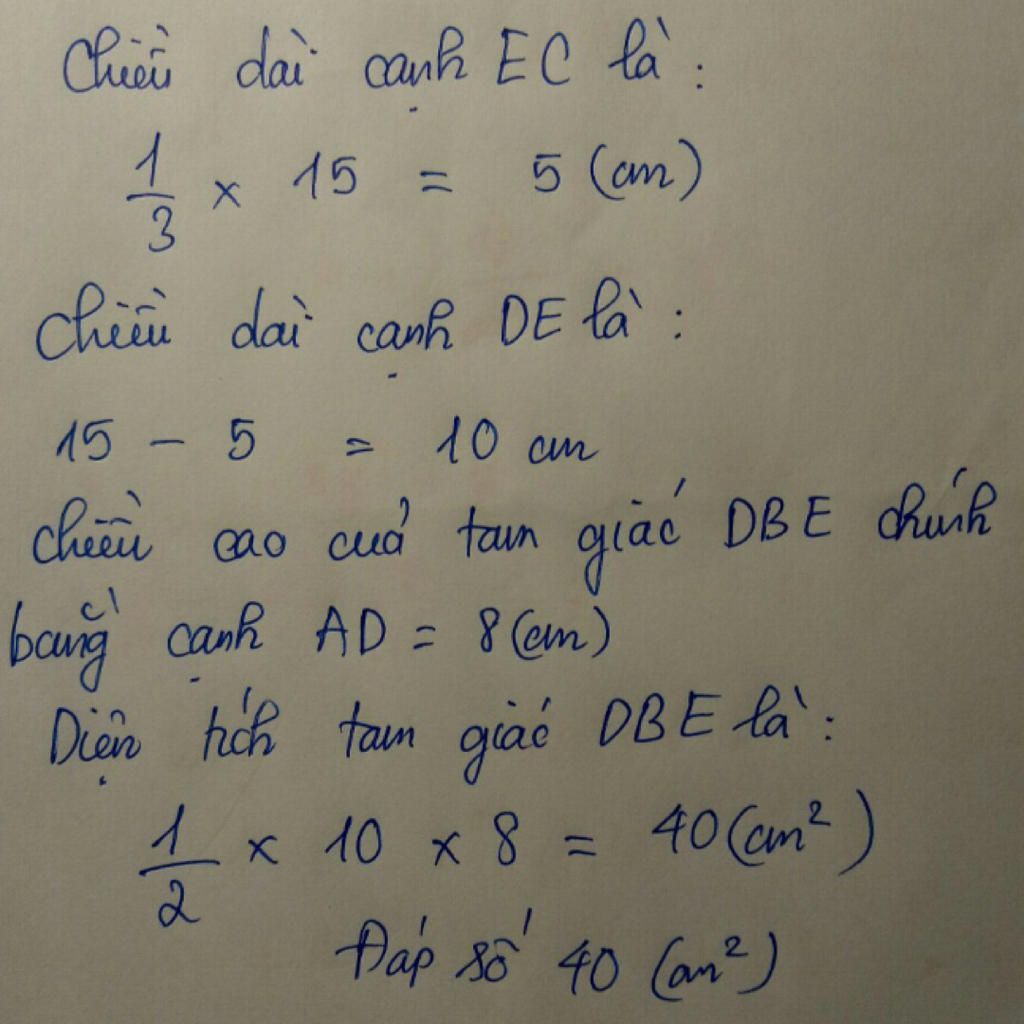 Chiều dài cạnh EC là:
1/3 x 15 = 5 (cm)
Chiều dài cạnh DE là:
15 - 5 = 10 cm
Chiều cao của tam giác DBE chính
bằng cạnh AD = 8 (cm)
Diện tích tam giác DBE là:
1/2 x 10 x 8 = 40 (cm²)
Đáp số 40 (cm²)